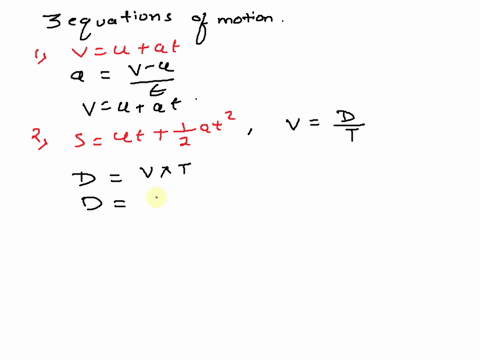 3 equations of motion.
1, V = u + at
a = V-u / t
V = u + at.
2, S = ut + 1/2 at², V = D/T
D = V × T
D =